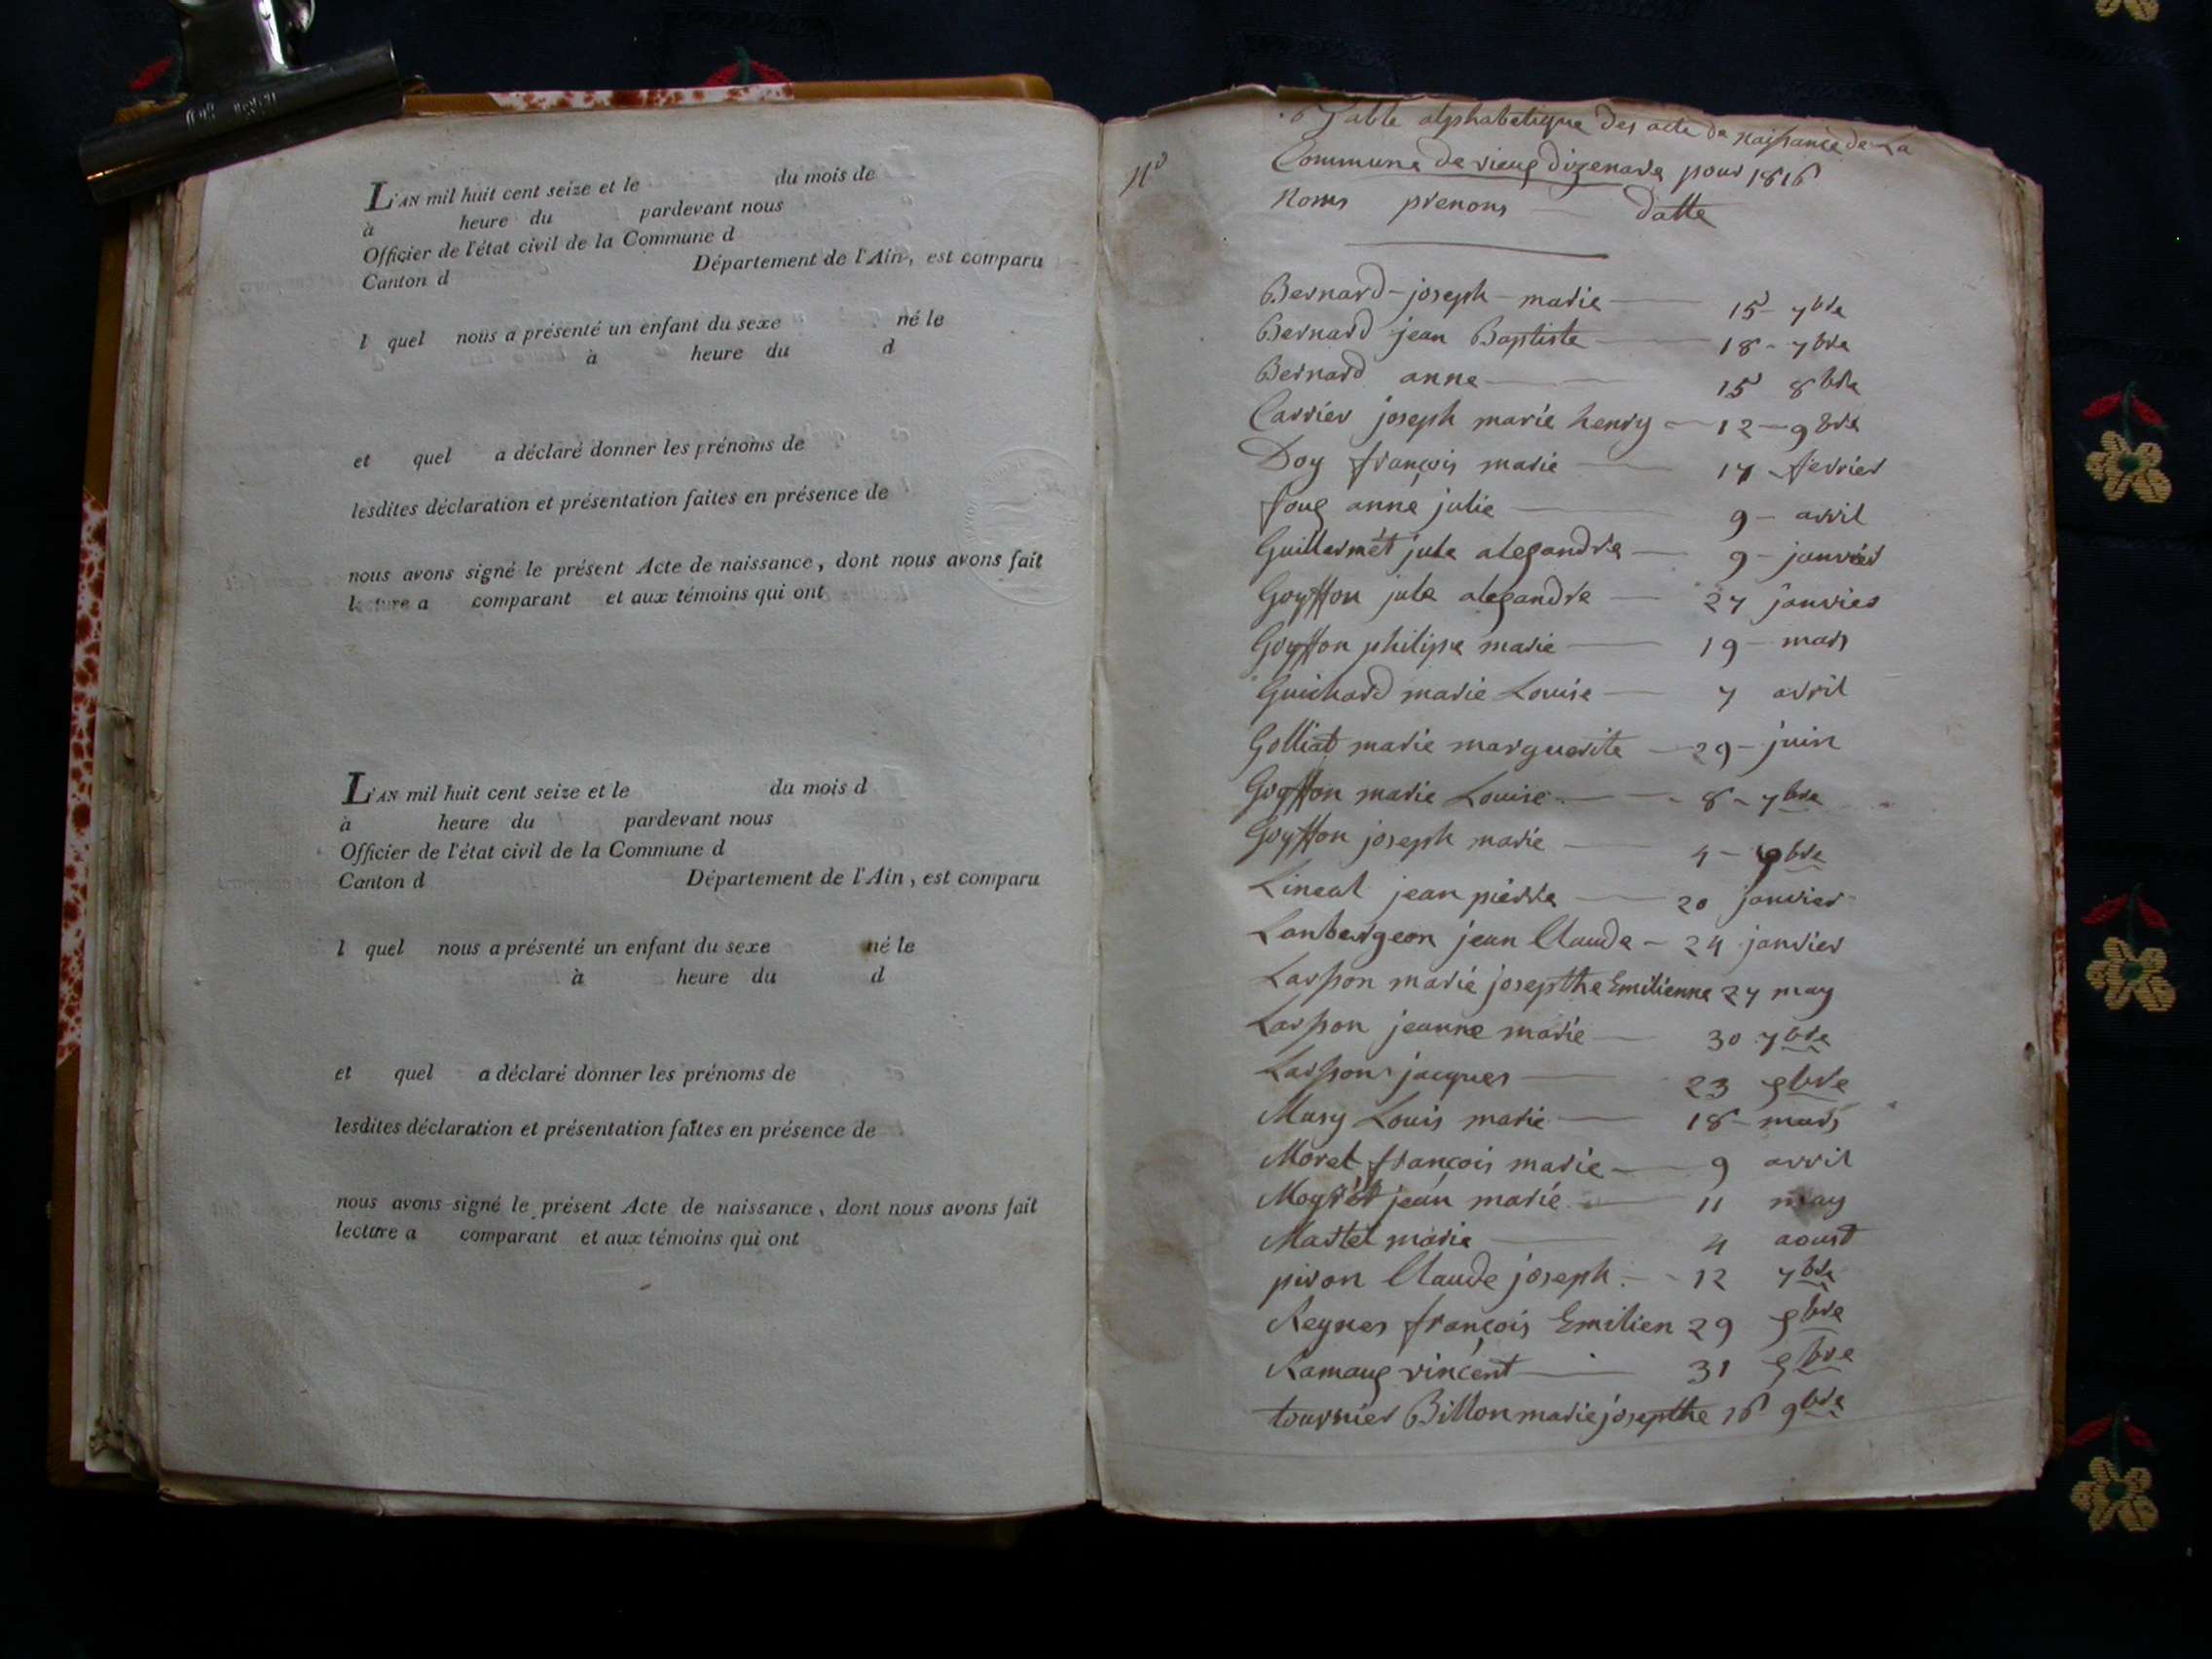 L'AN mil huit cent seize et le du mois de
à heure du pardevant nous
Officier de l'état civil de la Commune d
Canton d Département de l'Ain, est comparu
l quel nous a présenté un enfant du sexe né le
à heure du d
et quel a déclaré donner les prénoms de
lesdites déclaration et présentation faites en présence de
nous avons signé le présent Acte de naissance, dont nous avons fait
lecture a comparant et aux témoins qui ont
L'AN mil huit cent seize et le du mois d
à heure du pardevant nous
Officier de l'état civil de la Commune d
Canton d Département de l'Ain, est comparu
l quel nous a présenté un enfant du sexe né le
à heure du d
et quel a déclaré donner les prénoms de
lesdites déclaration et présentation faites en présence de
nous avons signé le présent Acte de naissance, dont nous avons fait
lecture a comparant et aux témoins qui ont
Table alphabetique des acte de naissance de La
Commune de vieux dizenave pour 1816
Noms prenoms — datte
Bernard - joseph - marie — 15 - 7bre
Bernard jean Baptiste — 18 - 7bre
Bernard anne — 15 8bre
Carrier joseph marie henry — 12 - 9bre
Doy françois marie — 14 - fevrier
foux anne julie — 9 - avril
Guillermet jule alexandre — 9 - janvier
Goyffon jule alexandre — 27 janvier
Goyffon philipe marie — 19 - mars
Guichard marie Louise — 7 avril
Golliat marie marguerite — 29 - juin
Goyffon marie Louise — 8 - 7bre
Goyffon joseph marie — 4 - 9bre
Lineal jean pierre — 20 janvier
Lambergeon jean Claude — 24 janvier
Larsson marie josepthe Emilienne 27 may
Larsson jeanne marie — 30 7bre
Larsson jacques — 23 9bre
Mary Louis marie — 18 - mars
Morel françois marie — 9 avril
jean marie — 11 may
Martel marie — 4 aoust
piron Claude joseph - 12 7bre
Reynes françois Emilien 29 9bre
Ramaux vincent — 31 bre
tournier Billon marie josepthe 16 9bre